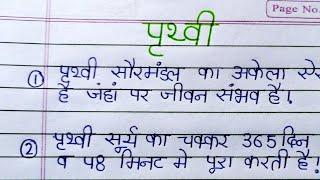 Page No.
पृथ्वी
① पृथ्वी सौरमंडल का अकेला
है जहां पर जीवन संभव है।
② पृथ्वी सूर्य का चक्कर 365 दिन
व 48 मिनट मे पूरा करती है।